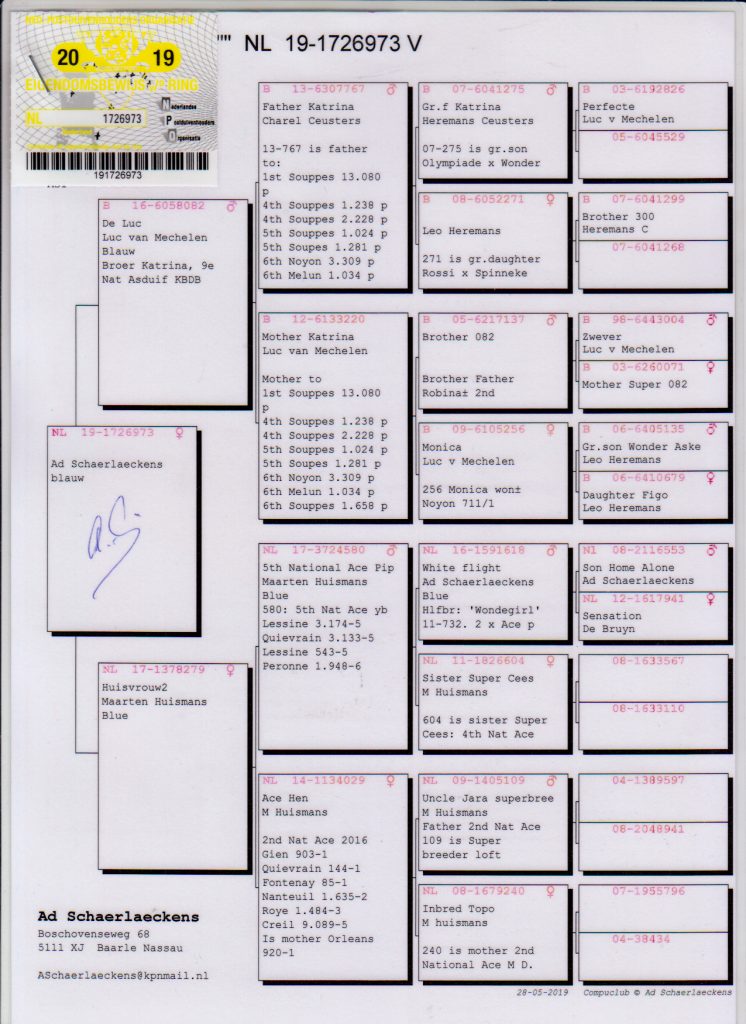 NED. POSTDUIVENHOUDERS ORGANISATIE
20 19
EIGENDOMSBEWIJS V/D RING
NL 1726973
Nederlandse
Postduivenhouders
Organisatie
N
P
O
191726973
"" NL 19-1726973 V
B 16-6058082 ♂
De Luc
Luc van Mechelen
Blauw
Broer Katrina, 9e
Nat Asduif KBDB
NL 19-1726973 ♀
Ad Schaerlaeckens
blauw
NL 17-1378279 ♀
Huisvrouw2
Maarten Huismans
Blue
B 13-6307767 ♂
Father Katrina
Charel Ceusters
13-767 is father
to:
1st Souppes 13.080
p
4th Souppes 1.238 p
4th Souppes 2.228 p
5th Souppes 1.024 p
5th Soupes 1.281 p
6th Noyon 3.309 p
6th Melun 1.034 p
B 12-6133220
Mother Katrina
Luc van Mechelen
Mother to
1st Souppes 13.080
p
4th Souppes 1.238 p
4th Souppes 2.228 p
5th Souppes 1.024 p
5th Soupes 1.281 p
6th Noyon 3.309 p
6th Melun 1.034 p
6th Souppes 1.658 p
NL 17-3724580 ♂
5th National Ace Pip
Maarten Huismans
Blue
580: 5th Nat Ace yb
Lessine 3.174-5
Quievrain 3.133-5
Lessine 543-5
Peronne 1.948-6
NL 14-1134029 ♀
Ace Hen
M Huismans
2nd Nat Ace 2016
Gien 903-1
Quievrain 144-1
Fontenay 85-1
Nanteuil 1.635-2
Roye 1.484-3
Creil 9.089-5
Is mother Orleans
920-1
B 07-6041275 ♂
Gr.f Katrina
Heremans Ceusters
07-275 is gr.son
Olympiade x Wonder
B 08-6052271 ♀
Leo Heremans
271 is gr.daughter
Rossi x Spinneke
B 05-6217137 ♂
Brother 082
Brother Father
Robina± 2nd
B 09-6105256 ♀
Monica
Luc v Mechelen
256 Monica won±
Noyon 711/1
NL 16-1591618 ♂
White flight
Ad Schaerlaeckens
Blue
Hlfbr: 'Wondegirl'
11-732. 2 x Ace p
NL 11-1826604 ♀
Sister Super Cees
M Huismans
604 is sister Super
Cees: 4th Nat Ace
NL 09-1405109 ♂
Uncle Jara superbree
M Huismans
Father 2nd Nat Ace
109 is Super
breeder loft
NL 08-1679240 ♀
Inbred Topo
M huismans
240 is mother 2nd
National Ace M D.
B 03-6192826
Perfecte
Luc v Mechelen
05-6045529
B 07-6041299
Brother 300
Heremans C
07-6041268
B 98-6443004 ♂
Zwever
Luc v Mechelen
B 03-6260071 ♀
Mother Super 082
B 06-6405135 ♂
Gr.son Wonder Aske
Leo Heremans
B 06-6410679 ♀
Daughter Figo
Leo Heremans
Nl 08-2116553 ♂
Son Home Alone
Ad Schaerlaeckens
NL 12-1617941 ♀
Sensation
De Bruyn
08-1633567
08-1633110
04-1389597
08-2048941
07-1955796
04-38434
Ad Schaerlaeckens
Boschovenseweg 68
5111 XJ Baarle Nassau
ASchaerlaeckens@kpnmail.nl
28-05-2019 Compuclub © Ad Schaerlaeckens